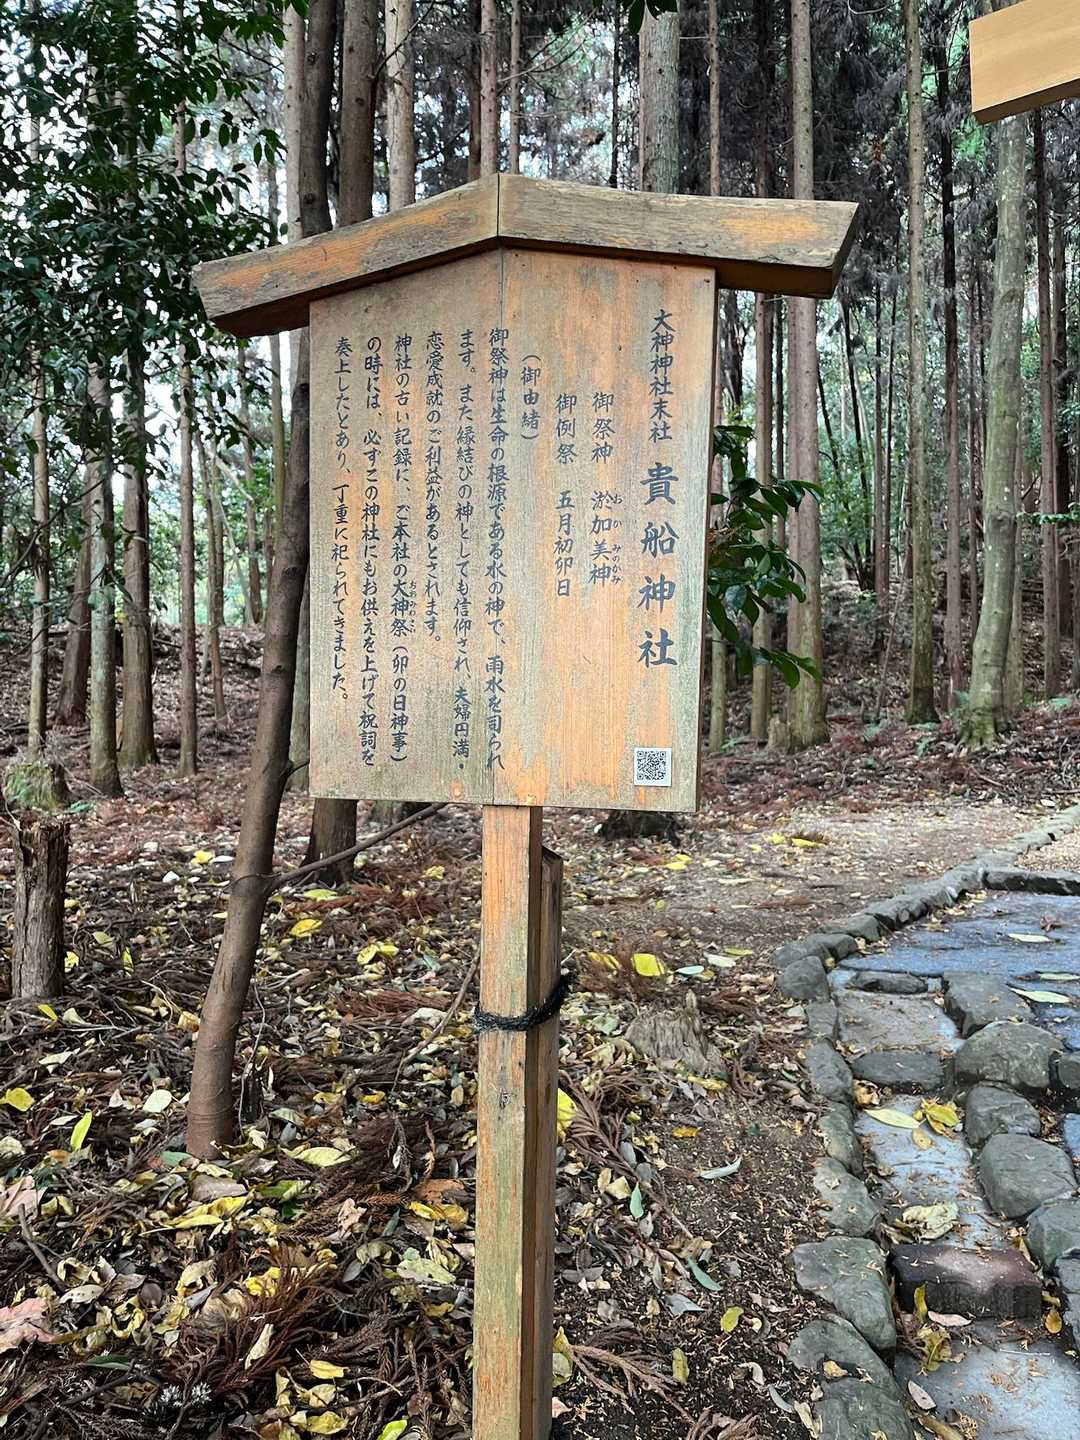 大神神社末社 貴船神社
御祭神 淤加美神
おかみのかみ
御例祭 五月初卯日
（御由緒）
御祭神は生命の根源である水の神で、雨水を司られ
ます。また縁結びの神としても信仰され、夫婦円満・
恋愛成就のご利益があるとされます。
神社の古い記録に、ご本社の大神祭（卯の日神事）
の時には、必ずこの神社にもお供えを上げて祝詞を
奏上したとあり、丁重に祀られてきました。